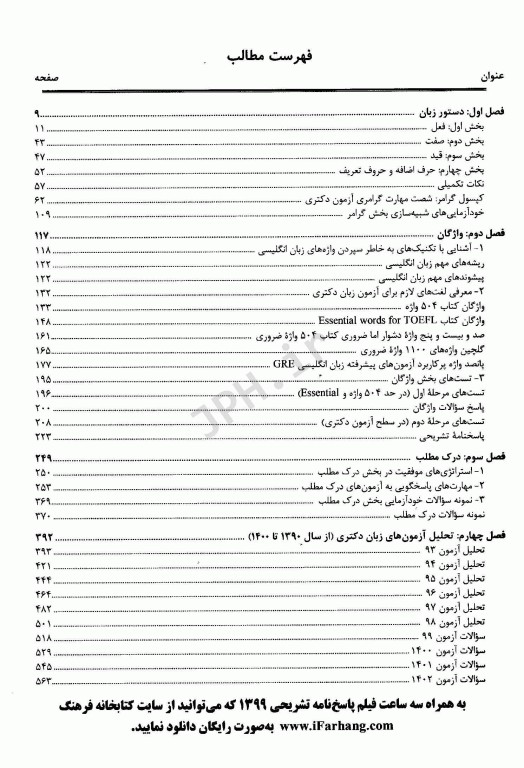 فهرست مطالب
عنوان صفحه
فصل اول: دستور زبان ۹
بخش اول: فعل ۱۱
بخش دوم: صفت ۴۳
بخش سوم: قید ۴۷
بخش چهارم: حرف اضافه و حروف تعریف ۵۲
نکات تکمیلی ۵۷
کپسول گرامر: شصت مهارت گرامری آزمون دکتری ۶۲
خودآزمایی‌های شبیه‌سازی بخش گرامر ۱۰۹
فصل دوم: واژگان ۱۱۷
۱- آشنایی با تکنیک‌های به خاطر سپردن واژه‌های زبان انگلیسی ۱۱۸
ریشه‌های مهم زبان انگلیسی ۱۲۲
پیشوندهای مهم زبان انگلیسی ۱۲۲
۲- معرفی لغت‌های لازم برای آزمون زبان دکتری ۱۳۲
واژگان کتاب ۵۰۴ واژه ۱۳۳
واژگان کتاب Essential words for TOEFL ۱۴۸
صد و بیست و پنج واژهٔ دشوار اما ضروری کتاب ۵۰۴ واژهٔ ضروری ۱۶۱
گلچین واژه‌های ۱۱۰۰ واژهٔ ضروری ۱۶۵
پانصد واژه پرکاربرد آزمون‌های پیشرفته زبان انگلیسی GRE ۱۷۷
۳- تست‌های بخش واژگان ۱۹۵
تست‌های مرحلهٔ اول (در حد ۵۰۴ واژه و Essential) ۱۹۶
پاسخ سؤالات واژگان ۲۰۰
تست‌های مرحلهٔ دوم (در سطح آزمون دکتری) ۲۰۸
پاسخنامهٔ تشریحی ۲۲۳
فصل سوم: درک مطلب ۲۴۹
۱- استراتژی‌های موفقیت در بخش درک مطلب ۲۵۰
۲- مهارت‌های پاسخگویی به آزمون‌های درک مطلب ۲۵۳
۳- نمونه سؤالات خودآزمایی بخش درک مطلب ۳۶۹
نمونه سؤالات درک مطلب ۳۷۰
فصل چهارم: تحلیل آزمون‌های زبان دکتری (از سال ۱۳۹۰ تا ۱۴۰۰) ۳۹۲
تحلیل آزمون ۹۳ ۳۹۳
تحلیل آزمون ۹۴ ۴۲۱
تحلیل آزمون ۹۵ ۴۴۴
تحلیل آزمون ۹۶ ۴۶۴
تحلیل آزمون ۹۷ ۴۸۲
تحلیل آزمون ۹۸ ۵۰۱
سؤالات آزمون ۹۹ ۵۱۸
سؤالات آزمون ۱۴۰۰ ۵۲۹
سؤالات آزمون ۱۴۰۱ ۵۴۵
سؤالات آزمون ۱۴۰۲ ۵۶۳
به همراه سه ساعت فیلم پاسخ‌نامه تشریحی ۱۳۹۹ که می‌توانید از سایت کتابخانه فرهنگ
www.iFarhang.com به‌صورت رایگان دانلود نمایید.
JPH.ir